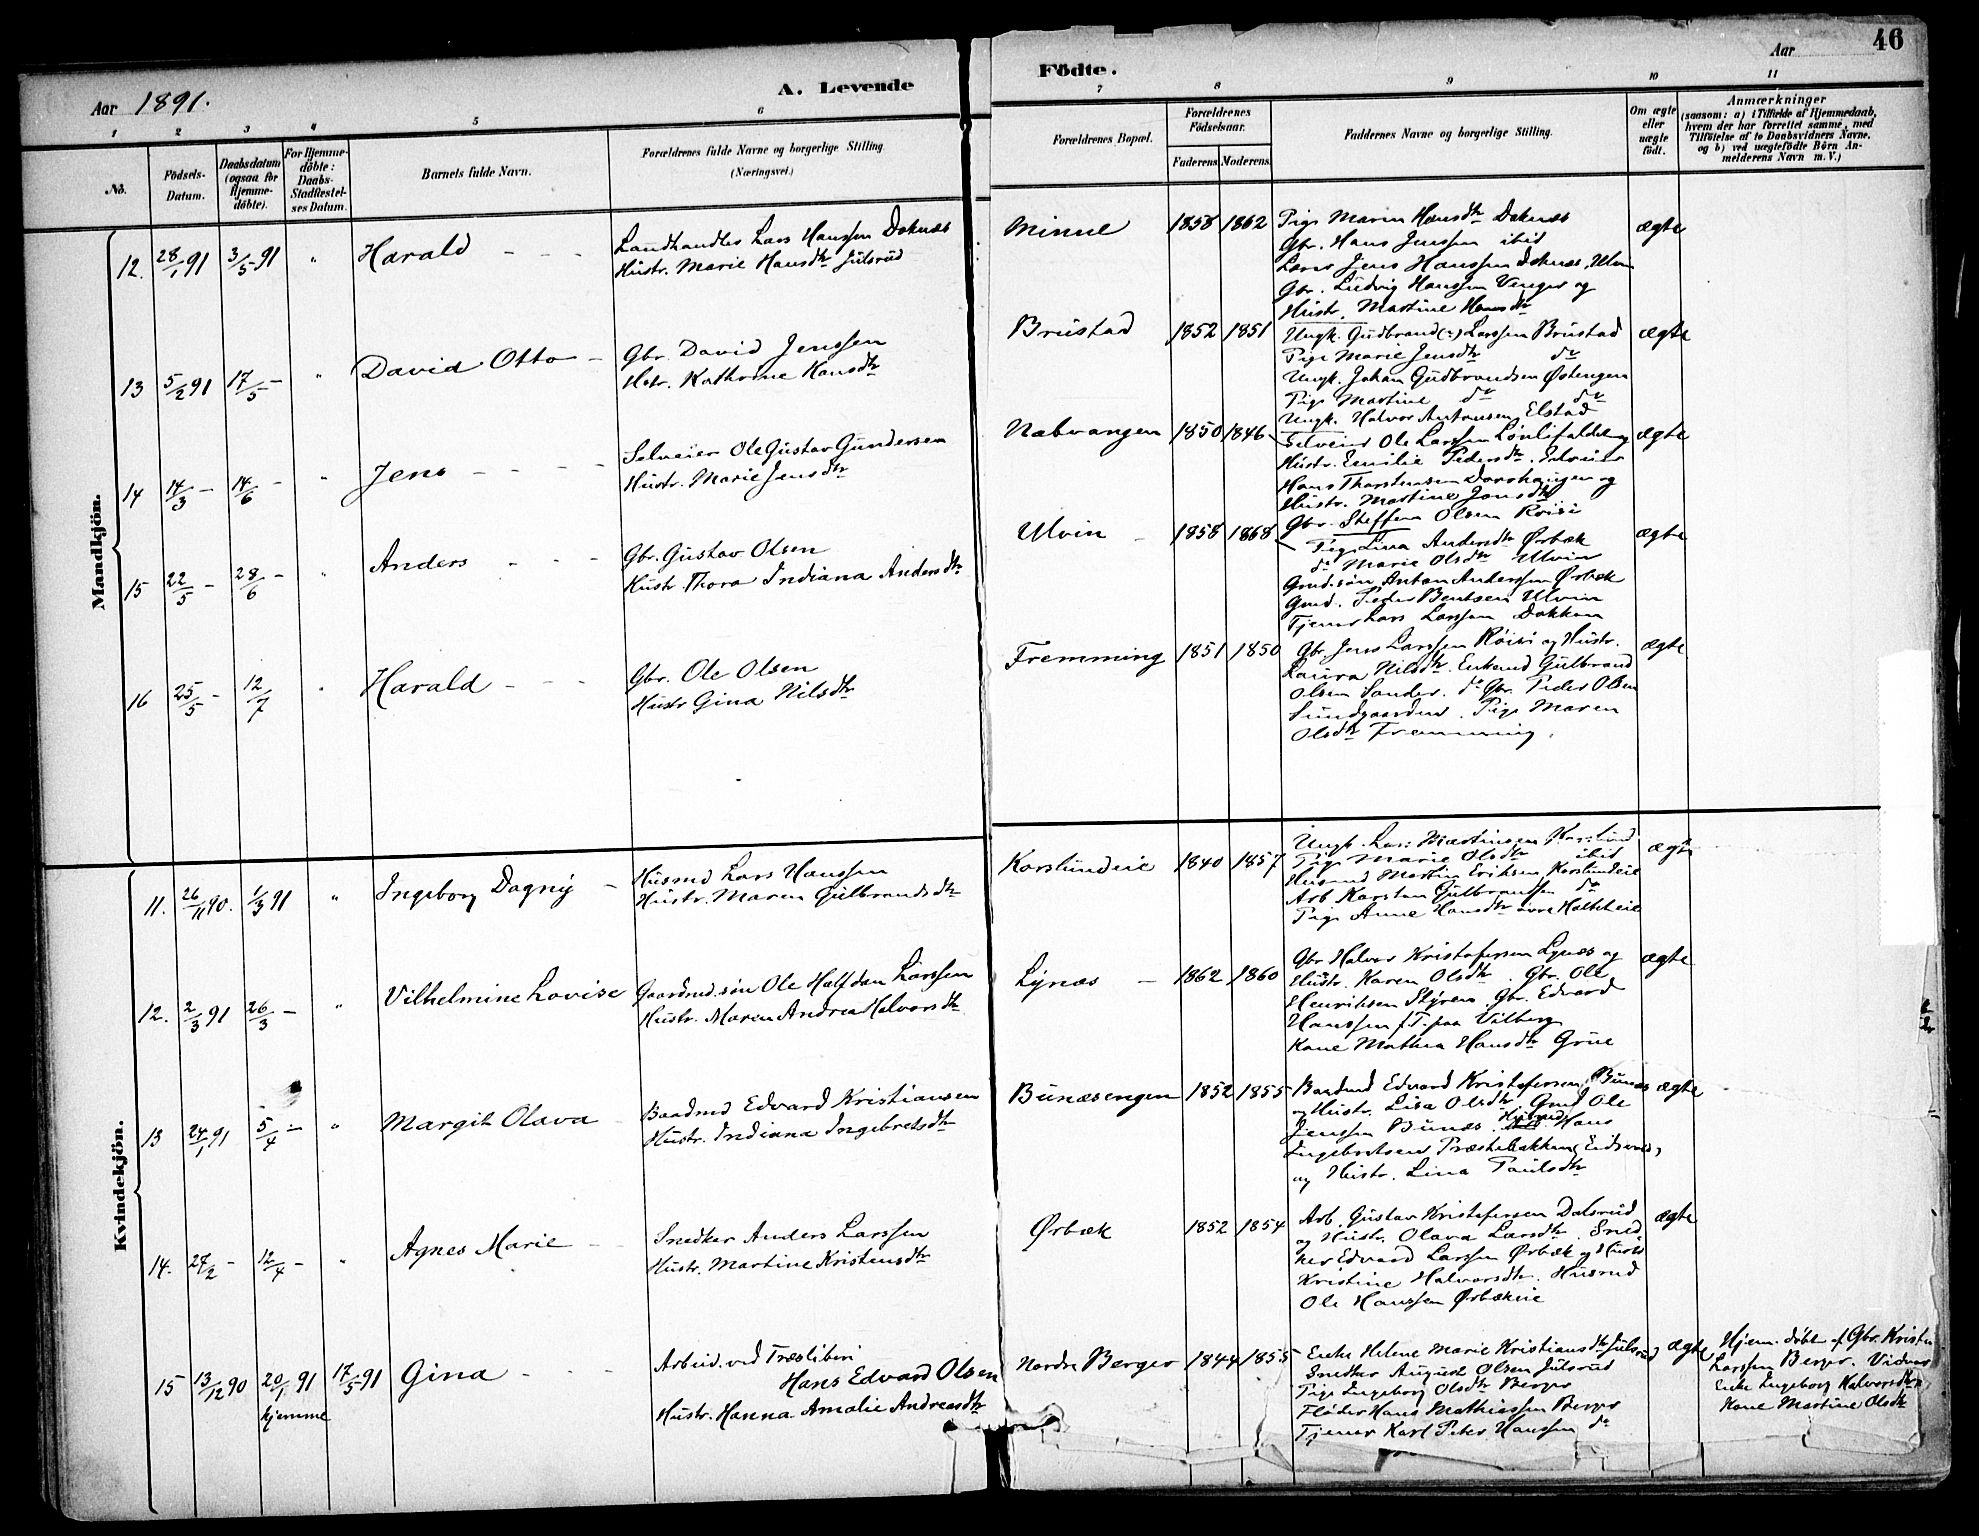 46
Aar 1891.
A. Levende
Födte.
Aar
1 2 3 4 5 6 7 8 9 10 11
No.
Födsels-Datum.
Daabsdatum (ogsaa for Hjemme-döbte).
For Hjemme-döbte: Daabs-Stadfæstel-ses Datum.
Barnets fulde Navn.
Forældrenes fulde Navne og borgerlige Stilling
(Næringsvei.)
Forældrenes Bopæl.
Forældrenes Födselsaar.
Faderens. Moderens.
Faddernes Navne og borgerlige Stilling.
Om ægte eller uægte födt.
Anmærkninger
(saasom: a) i Tilfælde af Hjemmedaab,
hvem der har forrettet samme, med
Tilföielse af to Daabsvidners Navne,
og b) ved uægtefödte Börn An-
melderens Navn m. V.)
Mandkjön.
12. 28/1 91 3/5 91 " Harald
Landhandler Lars Hanssen Doknæs
Hustr. Marie Hansdtr Julsrud
Minne 1858 1862
Pige Maren Hansdtr Doknæs
Gbr. Hans Jenssen ibid
Lærer Jens Hanssen Doknæs, Ulvin
Gbr. Ludvig Hanssen Venger og
Hustr. Martine Hansdtr
ægte
13 5/2 91 17/5 - " David Otto
Gbr. David Jenssen
Hstr. Kathrine Hansdtr
Brustad 1852 1851
Ungk. Gudbrand Larssen Brustad
Pige Marie Jensdtr do
Ungk. Johan Gudbrandsen Østengen
Pige Martine do do
Ungk. Halvor Antonsen Elstad
ægte
14 14/3 - 14/6 - " Jens
Selveier Ole Gustav Gundersen
Hustr. Marie Jensdtr
Nabvangen 1850 1846
Selveier Ole Larssen Lönlifaldet og
Hustr. Emilie Pedersdtr. Selveier
Hans Thorstensen Dorshaugen og
Hustr. Martine Jonsdtr
Gbr. Steffen Olsen Röisi
ægte
15 22/5 - 28/6 - " Anders
Gbr. Gustav Olsen
Hustr. Thora Indiana Andersdtr
Ulvin 1858 1868
Pige Lina Andersdtr Ørbæk
do Marie Olsdtr Ulvin
Gmd.sön Anton Anderssen Ørbæk
Gmd. Peder Bentsen Ulvin
Tjener Lars Larssen Dokken
ægte
16 25/5 - 12/7 " Harald
Gbr. Ole Olsen
Hustr Gina Nilsdtr
Fremming 1851 1850
Gbr. Jens Larssen Röisi og Hustr.
Laura Nilsdtr. Enkemd Gulbrand
Olsen Sander. do Gbr. Peder Olsen
Sundgaarden. Pige Maren
Olsdtr Fremming.
ægte
Kvindekjön.
11. 26/11 90. 1/3 91 " Ingeborg Dagny
Husmd Lars Hanssen
Hustr. Maren Gulbrandsdtr
Korslundeie 1840 1857
Ungk. Lars Martinssen Korslund
Pige Marie Olsdtr ibid
Husmd Martin Eriksen Korslundeie
Arb Karsten Gulbranssen do
Pige Anne Hansdtr övre Holteeie
ægte
12. 2/3 91 26/3 - " Vilhelmine Lovise
Gaardmd.sön Ole Halfdan Larssen
Hustr. Maren Andrea Halvorsdtr
Lynæs 1862 1860
Gbr Halvor Kristofersen Lynæs og
Hustr. Karen Olsdtr. Gbr. Ole
Henriksen Styren. Gbr. Edvard
Hanssen f.T. paa Vilberg
Kone Mathea Hansdtr Grue
ægte
13 24/1 91 5/4 - " Margit Olava
Baadmd Edvard Kristiansen
Hustr. Indiana Ingebretsdtr
Bunæsengen 1852 1855
Baadmd Edvard Kristofersen Bunæs
og Hustr. Lisa Olsdtr. Gmd Ole
Jenssen Bunæs. Husmd Hans
Ingebretsen Præstebakken, Eidsvold,
og Hustr. Lina Paulsdtr
ægte
14. 27/2 - 12/4 - " Agnes Marie
Snedker Anders Larssen
Hustr. Martine Kristensdtr
Ørbæk 1852 1854
Arb. Gustav Kristofersen Dalsrud
og Hustr. Olava Larsdtr. Sned
ker Edvard Larssen Ørbæk og Hustr
Kristine Halvorsdtr. Husmd
Ole Hanssen Ørbækeie
ægte
15 13/12 90 20/1 91 hjemme 17/5 91 Gina
Arbeid. ved Træsliberi
Hans Edvard Olsen
Hustr. Hanna Amalie Andreasdtr
Nordre Berger 1844 1855
Enke Helene Marie Kristiansdtr Julsrud
Snedker August Olsen Julsrud
Pige Ingeborg Olsdtr Berger
Fløder Hans Mathiassen Berger
Tjener Karl Peter Hanssen do
ægte
Hjem.döbt af Gbr. Kristen
Larssen Berger. Vidner
Enke Ingeborg Halvorsdtr
Kone Martine Olsdtr